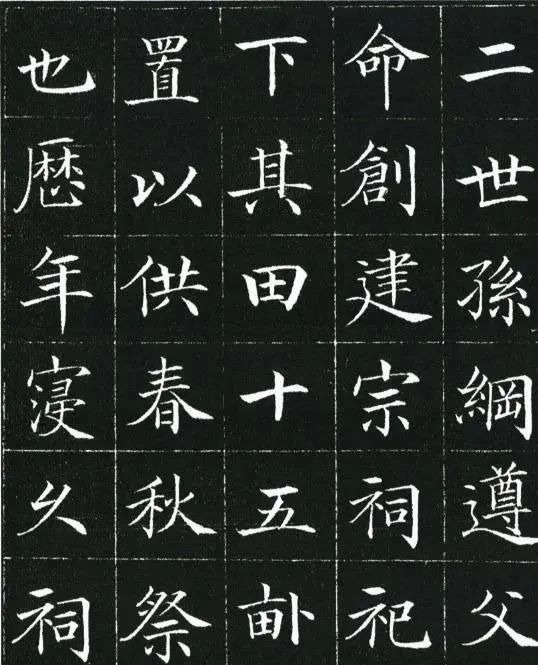 二世孫綱遵父
命創建宗祠祀
下其田十五畝
置以供春秋祭
也歷年寖久祠